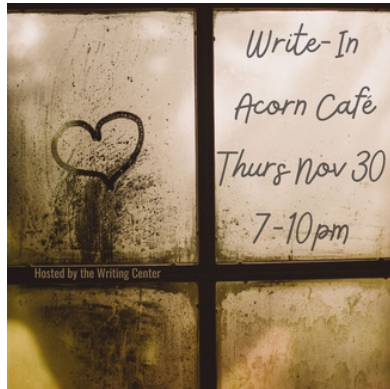 Write-In
Acorn Café
Thurs Nov 30
7-10pm
Hosted by the Writing Center